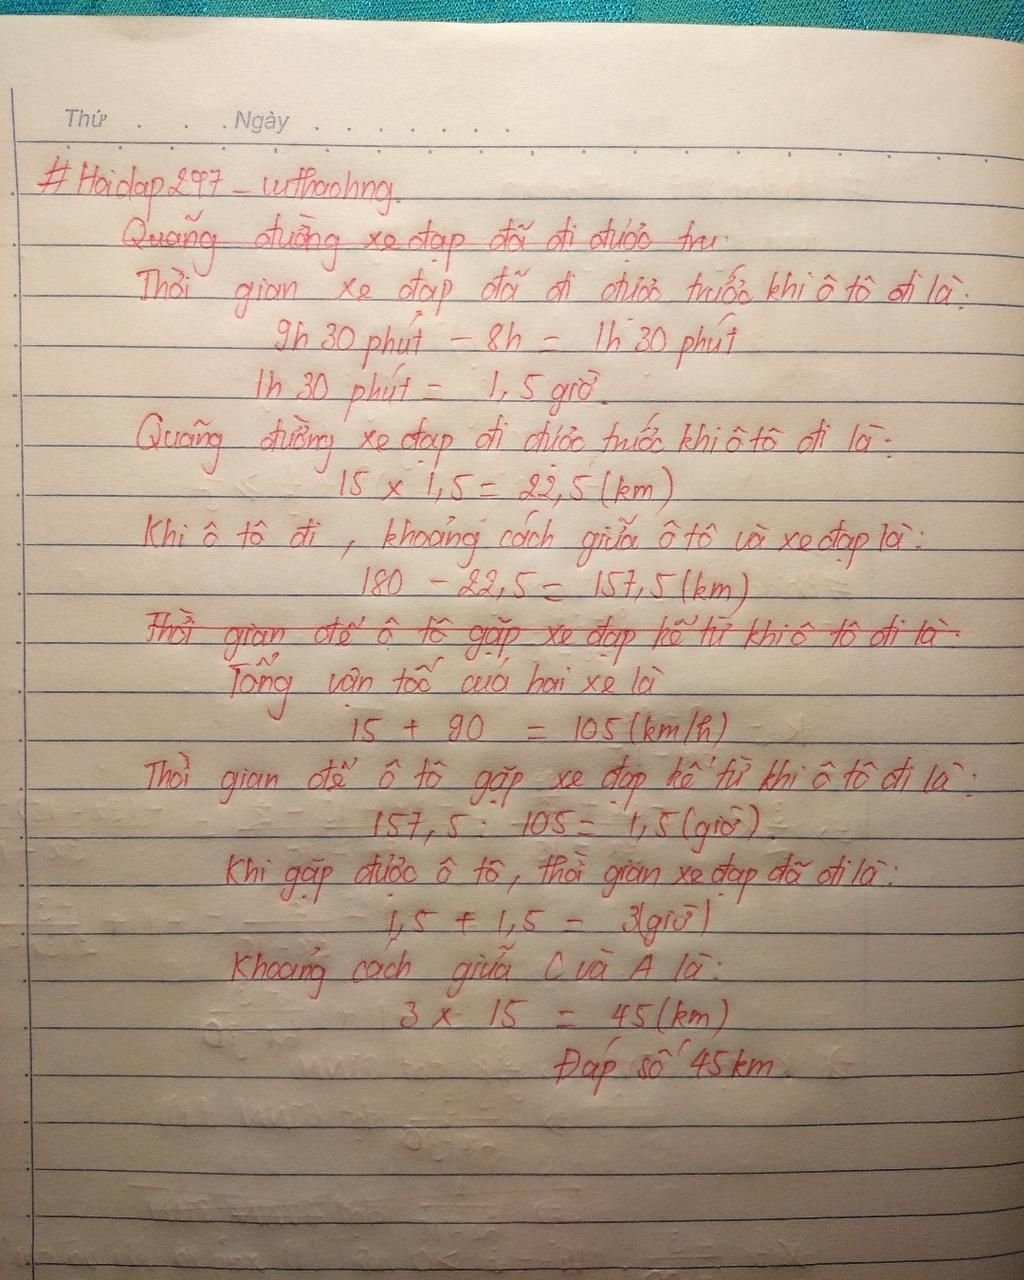 Thứ . . . Ngày . . . . . . .
#Hoidap247 - vuthaohng.
Quãng đường xe đạp đã đi được trư
Thời gian xe đạp đã đi được trước khi ô tô đi là:
9h 30 phút - 8h = 1h 30 phút
1h 30 phút = 1,5 giờ.
Quãng đường xe đạp đi được trước khi ô tô đi là:
15 x 1,5 = 22,5 (km)
Khi ô tô đi, khoảng cách giữa ô tô và xe đạp là:
180 - 22,5 = 157,5 (km)
Thời gian để ô tô gặp xe đạp kể từ khi ô tô đi là:
Tổng vận tốc của hai xe là
15 + 90 = 105 (km/h)
Thời gian để ô tô gặp xe đạp kể từ khi ô tô đi là:
157,5 : 105 = 1,5 (giờ).
Khi gặp được ô tô, thời gian xe đạp đã đi là:
1,5 + 1,5 = 3(giờ)
Khoảng cách giữa C và A là:
3 x 15 = 45 (km)
Đáp số 45 km.